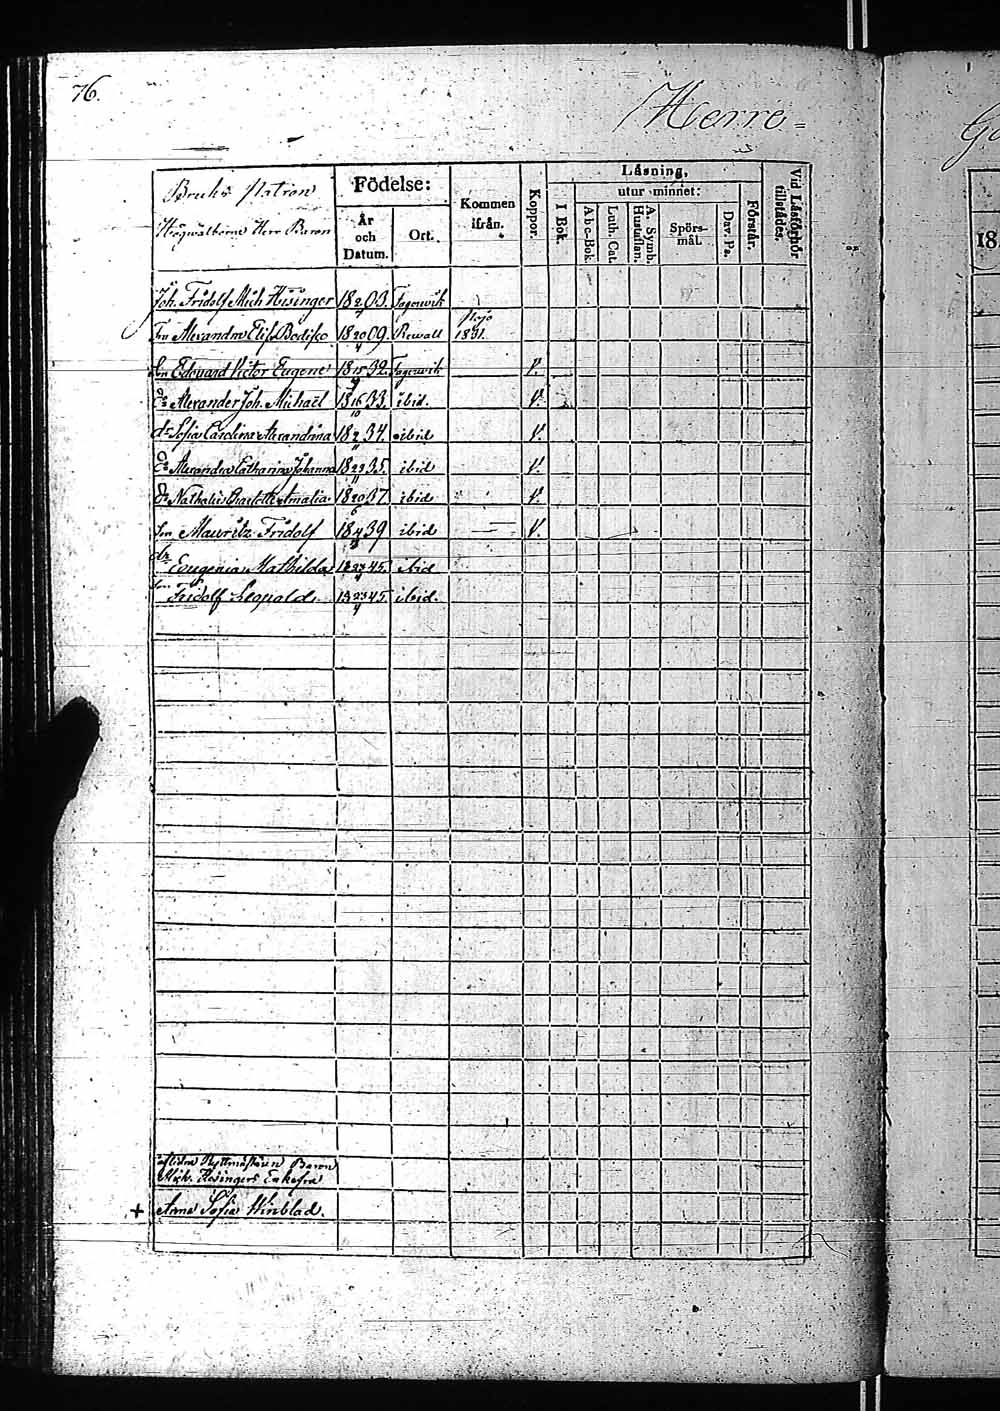 76.
Herre=
Bruks Patron
Högwälborne Herr Baron
Födelse:
År och Datum.
Ort.
Kommen ifrån.
Koppor.
Läsning,
I Bok.
utur minnet:
Abc-Bok
Luth. Cat.
A. Symb. Hustaflan.
Spörs-mål.
Dav. Ps.
Förstår.
Vid Läsförhör tillstädes.
18
Joh. Fridolf Mich Hisinger 18 2 03. Fagervik
Fru Alexandra Elis. Bodisco 18 20 09. Rewall 1831.
Son Edouard Victor Eugene 18 15 32. Fagervik V.
Do Alexander Joh. Michaël 18 16 33. ibid. V.
10
dr Sofia Carolina Alexandrina 18 2 34. ibid V.
11
Dr Alexandra Catharina Johanna 18 23 35. ibid V.
11
Dr Nathalie Charlotta Amalia 18 20 37. ibid V.
6
son Mauritz Fridolf 18 4 39 ibid V.
dr Eugenia Mathilda 18 23 45. ibid
son Fridolf Leopold. 18 23 45. ibid.
4
aflidne Ryttmästaren Baron
Mich. Hisingers Enkefru
+ Anna Sofia Winblad.